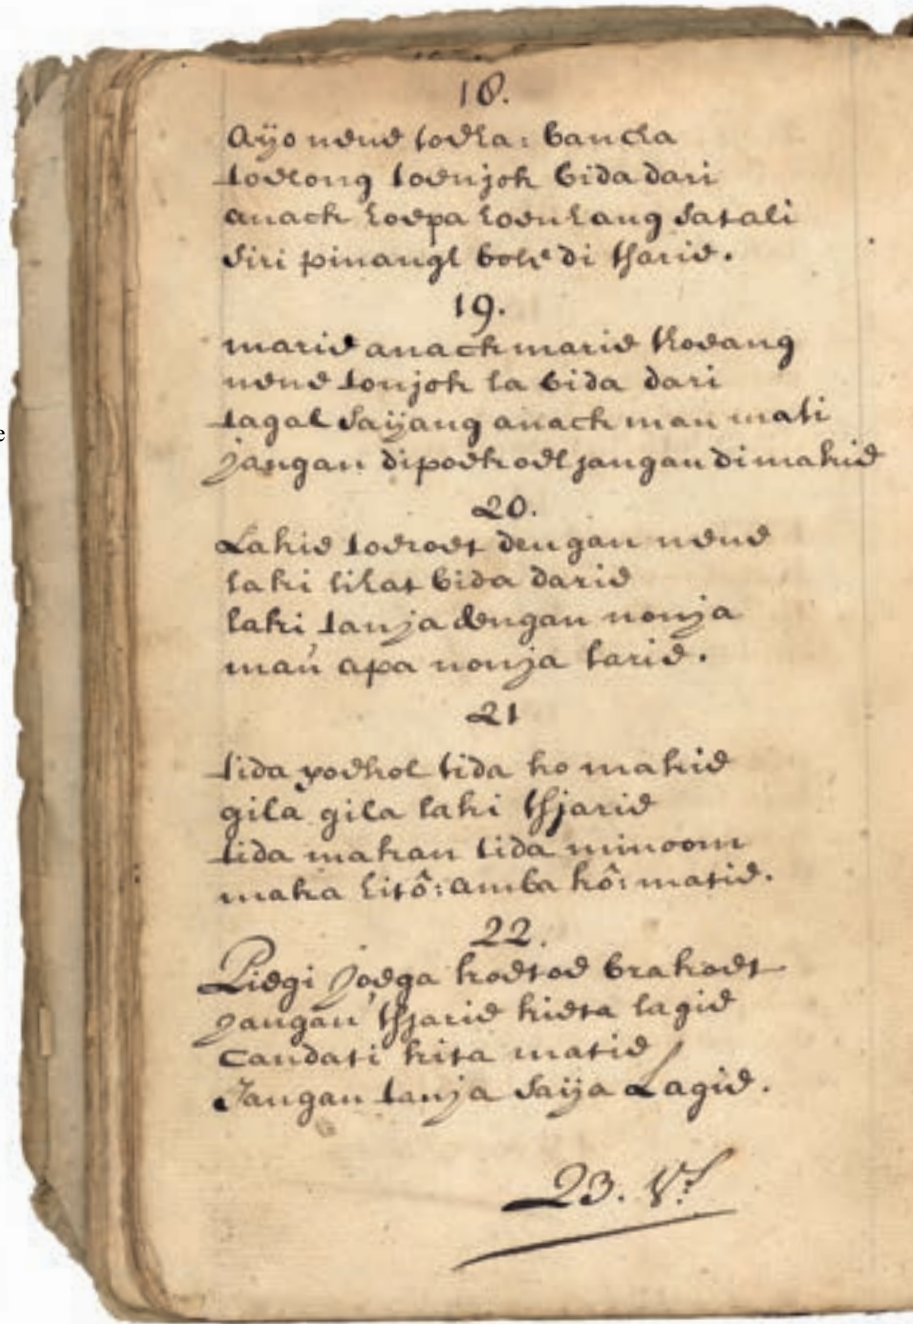 18.
Ayo nene toela: bancka
toelong toenjok bida dari
anack loepa loenlang satali
siri pinangl bole di tjarie.
19.
marie anack marie koeang
nene tonjok la bida dari
tagal saÿang anack mau mati
jangan dipoekoel jangan di makie
20.
Lakie toeroet dengan nene
laki lihat bida darie
laki tanja dengan nonja
mau apa nonja larie.
21
tida poekol tida ko makie
gila gila laki tjarie
tida makan tida minoom
maka litô: amba kô: matie.
22.
Piegi joega koetoe brakoet
jangan tjarie kieta lagie
Candati kita matie
Jangan tanja saija Lagie.
23. Vs
e